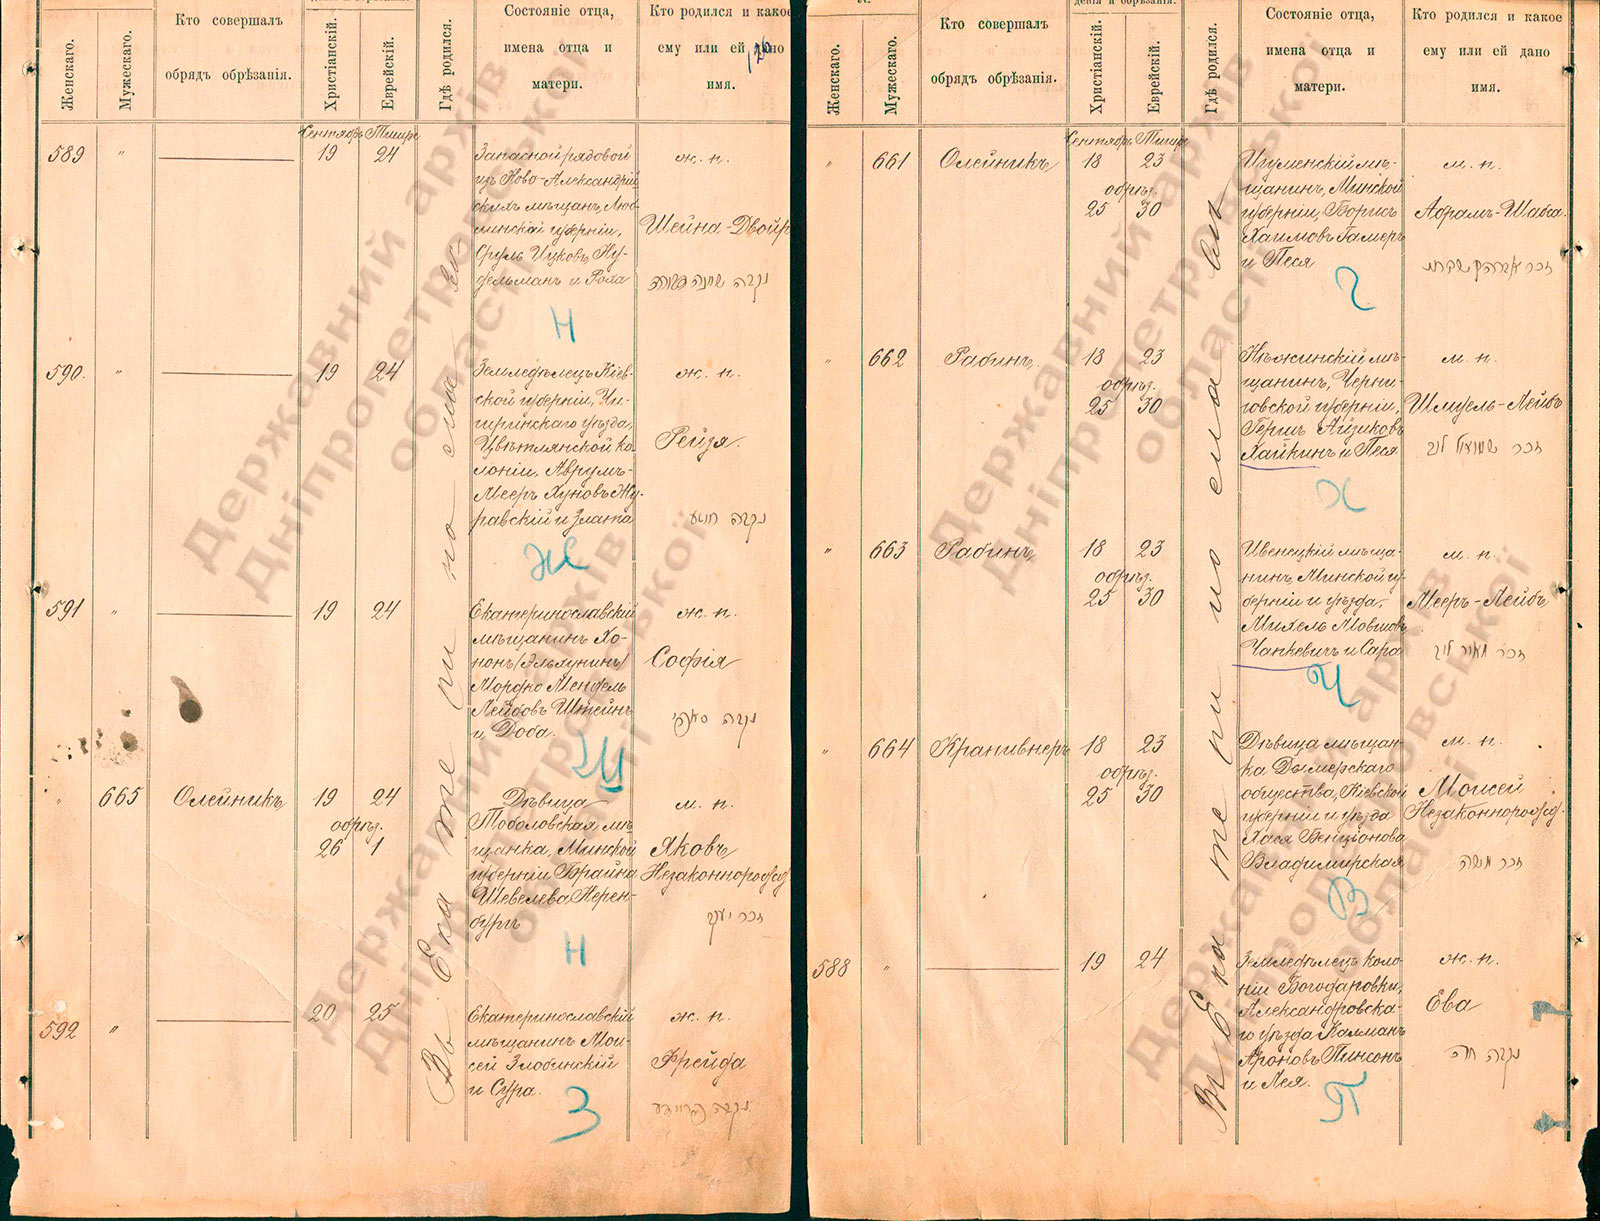 Женскаго.
Мужескаго.
Кто совершалъ
обрядъ обрѣзанія.
Христіанскій.
Еврейскій.
Гдѣ родился.
Состояніе отца,
имена отца и
матери.
Кто родился и какое
ему или ей дано
имя.
126
Сентябрь Тишре
589 " 19 24
Запасной рядовой
изъ Ново-Александрій
скихъ мѣщан, Люб-
линской губерніи,
Сруль Ицковъ Ну-
дельманъ и Рохла
ж. п.
Шейна-Двойр
נקבה שיינה דבורה
Н
590. " 19 24
Земледѣлецъ Кіев-
ской губерніи, Чи-
гиринскаго уѣзда,
Цвѣтлянской ко-
лоніи, Аврумъ-
Мееръ Хуновъ Жу-
равскій и Злата
ж. п.
Рейзя.
Ж
591 " 19 24
Екатеринославскій
мѣщанинъ Хо-
нон/Эльхунинъ/
Мордко Мендель
Лейбовъ Штейнъ
и Доба.
ж. п.
Софія
נקבה סאפי
Ш
" 665 Олейникъ 19 24
обрѣз.
26 1
Дѣвица
мѣ-
щанка, Минской
губерніи Брайна
Шевелева Нерен-
бургъ
м. п.
Яковъ
Незаконнорожд
זכר יעקב
Н
592 " 20 25
Екатеринославскій
мѣщанинъ Мои-
сей Злобинскій
и Сура.
ж. п.
Фрейда
נקבה פריידע
З
Въ Екатеринославѣ
Женскаго.
Мужескаго.
Кто совершалъ
обрядъ обрѣзанія.
Христіанскій.
Еврейскій.
Гдѣ родился.
Состояніе отца,
имена отца и
матери.
Кто родился и какое
ему или ей дано
имя.
Сентябрь Тишре
" 661 Олейникъ 18 23
обрѣз.
25 30
Игуменскій мѣ-
щанин, Минской
губерніи, Борисъ
Хаимовъ Гамеръ
и Песя
м. п.
Абрамъ-Шабса.
Г
" 662 Рабинъ 18 23
обрѣз.
25 30
Нѣжинскій мѣ-
щанин, Черни-
говской губерніи,
Гершъ Айзиковъ
Хайкинъ и Песя
м. п.
Шмуель-Лейбъ
זכר שמואל לייב
Х
" 663 Рабинъ 18 23
обрѣз.
25 30
Ивенецкій мѣща-
нинъ Минской гу-
берніи и уѣзда,
Михель Мовшовъ
Чанкевичъ и Сара
м. п.
Мееръ-Лейбъ
זכר מאיר לייב
Ч
" 664 Крапивнеръ 18 23
обрѣз.
25 30
Дѣвица мѣщан-
ка Дымерскаго
общества, Кіевской
губерніи и уѣзда
Хася Бенціонова
Владимирская
м. п.
Моисей
Незаконнорожд.
זכר משה
В
588 " 19 24
Земледѣлецъ коло-
ніи Богодаровки,
Александровска-
го уѣзда Калманъ
Ароновъ Пинсонъ
и Лея.
ж. п.
Ева
נקבה חוה
П
Въ Екатеринославѣ
Державний архів
Дніпропетровської
області